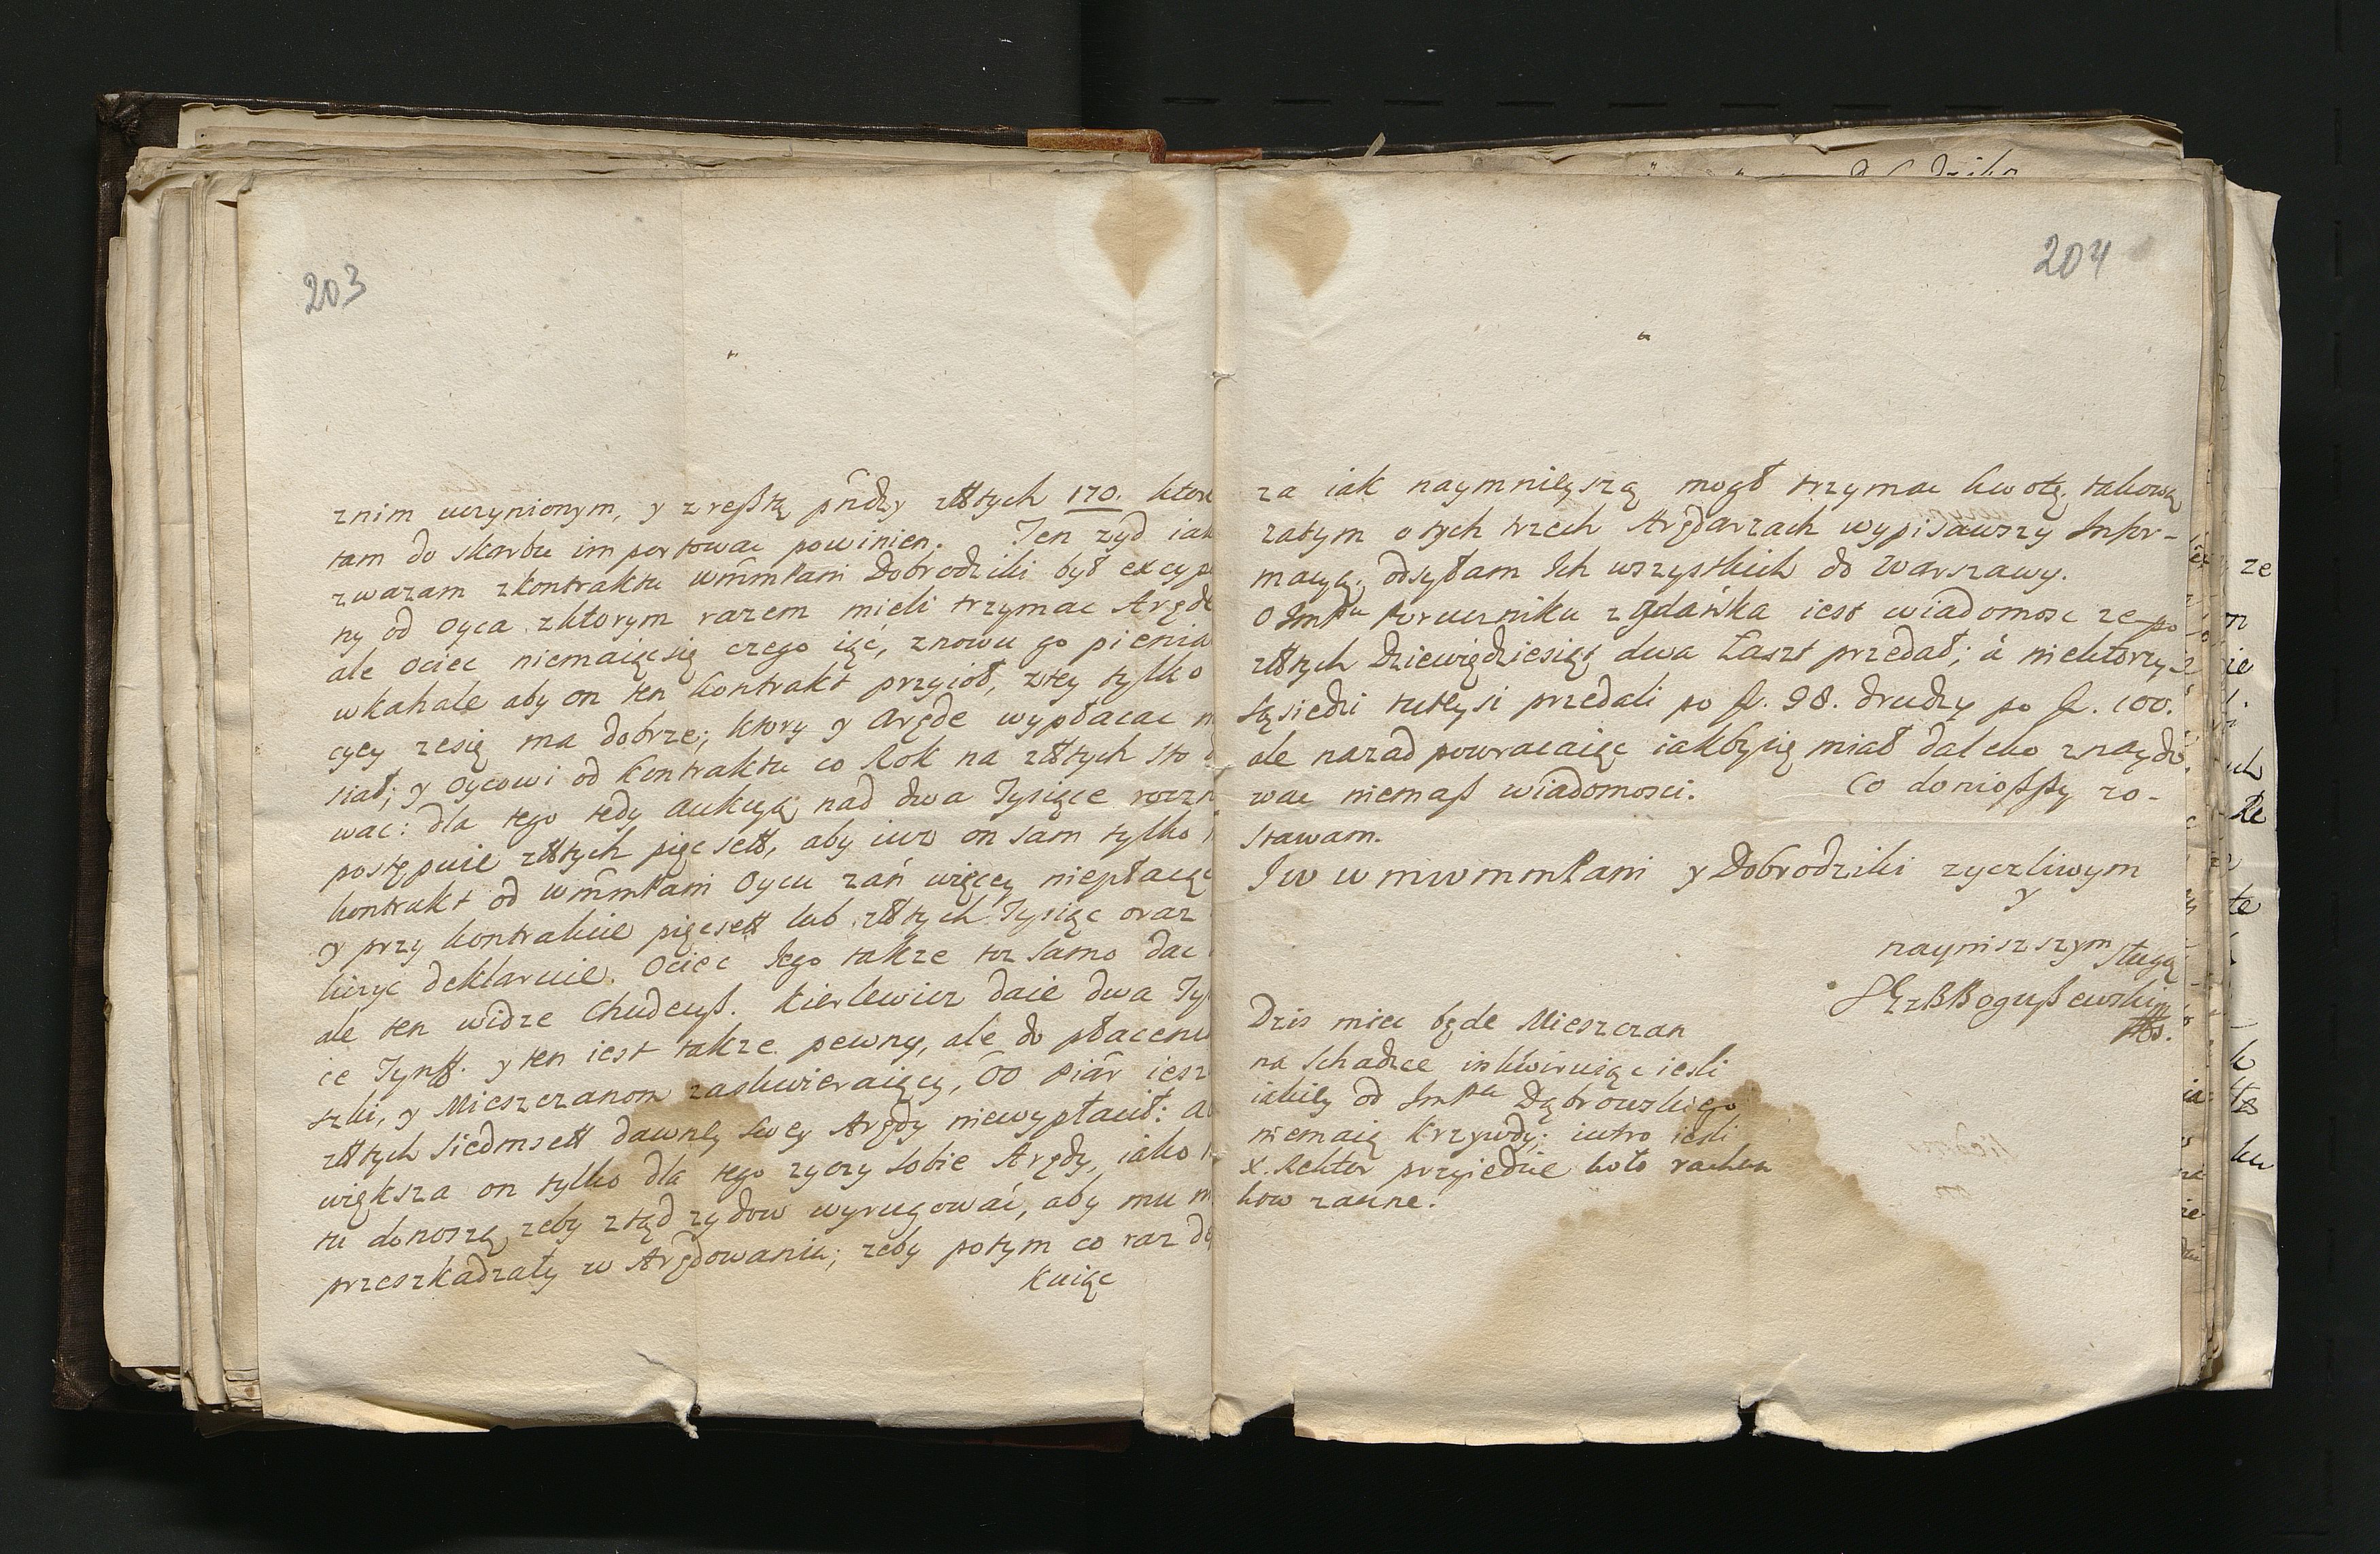 203
znim uczynionym, y zresztą pñdzy złłtych 170. ktore
tam do skarbu importowac powinien. Ten zyd iak
zwazam zkontraktu wm̃mPani Dobrodziki był excyp
ny od Oyca zktorym razem mieli trzymac Arędę
ale Ociec niemaiącsię czego iąć, znowu go pienia
wkahale aby on ten kontrakt przyioł, ztey tylko
cycy zesię ma dobrze; ktory y Arędę wypłacac m
siał; y Oycowi od kontraktu co Rok na złłtych sto
wac: dla tego tedy aukcyą nad dwa Tysiące roczn
postępuie złłtych pięcsett, aby iuz on sam tylko
kontrakt od wm̃mPani Oycu zań więcey niepłacąc
y przy kontrakcie pięcsett lub złłtych Tysiąc oraz
liczyc deklaruie. Ociec Iego takze toz samo dac
ale ten widze Chudeusz. Kierlewicz daie dwa Ty
ce Tynff. y ten iest takze pewny, ale do płacenia
szki, y Mieszczanom zaskwieraiący, Oo Piár iesz
złłtych siedmsett dawney swey Arędy niewypłacił: a
większa on tylko dla tego zyczy sobie Arędy, iako
tu donoszą zeby ztąd zydow wyrugować, aby mu n
przeszkadzały w Arędowaniu; zeby potym co raz do
kuiąc
204
za iak naymnieyszą mogł trzymac kwotę. takową
zatym otych trzech Arędarzach wypisawszy Infor-
macyą, odsyłam Ich wszystkich do Warszawy.
O ImPu Poruczniku z Gdańska iest wiadomosc ze po
złłtych Dziewiędziesiąt dwa Łaszt przedał; á niektorzy
Sąsiedzi tuteysi przedali po fl. 98. drudzy po fl. 100.
ale nazad powracaiąc iakbysię miał daleko znaydo
wac niemasz wiadomosci. Co donioszszy zo-
stawam.
Iw w mwmmPani y Dobrodziki zyczliwym
y
nayniszszym sługą
Boguszewskim
Dzis miec będe Mieszczan
na schadzce inkwiruiąc iesli
iakiey od ImPa Dąbrowskiego
niemaią krzywdy; iutro iesli
X. Rektor przyiedzie koło rachun
kow zaczne.